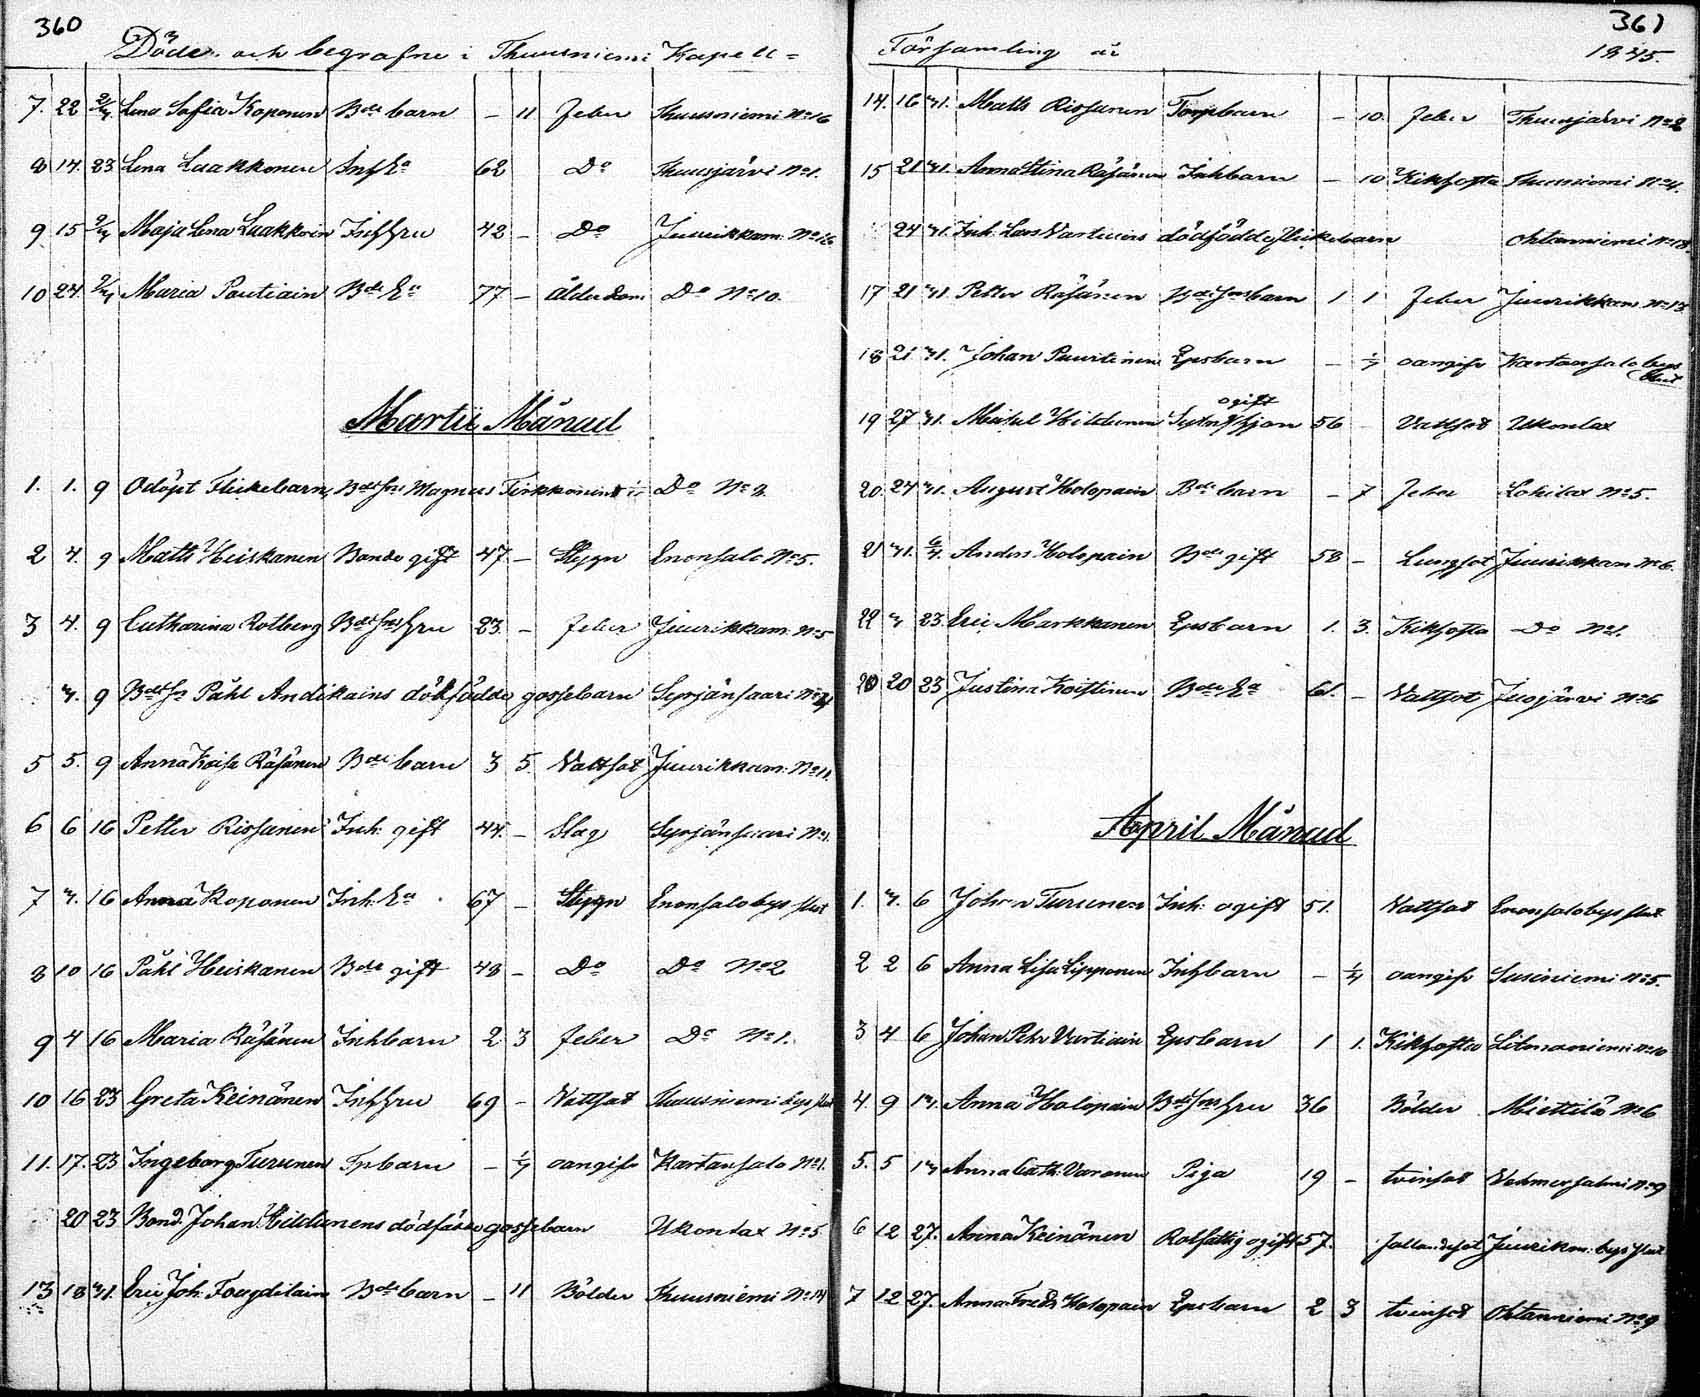 360
Döde och begrafne i Thuusniemi Kapell=
7. 22 2/4 Lena Sofia Koponen Bde barn - 11 Feber Thuusniemi No 16
8 17. 23 Lena Laakkonen Inh Ea 62 Do Thuusjärvi No 1.
9 15 2/4 Maja Lena Laakkoin Inh hru 42 - Do Juurikkam. No 16
10 24 2/4 Maria Pautiain Bde Ea 77 - ålderdom Do No 10.
Martii Månad
1. 1. 9 Odöpt Flickebarn, Magnus Do No 2.
2 4. 9 Matts Heiskanen Bonde gift 47 - Styyn Enonsalo No 5.
3 4. 9 Catharina Rotberg Bdesonshru 23. - Feber Juurikkam. No 5
9 Påhl Andikains dödfödde gossebarn Syrjänsaari
5 5. 9 Anna Kaisa Räsänen Bde barn 3 5. Vattsot Juurikkam. No 11.
6 6 16 Petter Rissanen Inh. gift 44. - Slag Syrjänsaari No 1.
7 16 Anna Koponen Inh. Ea 67 - Styyn Enonsalo bys slut
8 10 16 Påhl Heiskanen Bde gift 48 - Do Do No 2
9 4 16 Maria Räsänen Inhbarn 2 3 Feber Do No 1.
10 16 23 Greta Keinänen Inh hru 69 - Vattsot Thuusniemi bys slut
11. 17. 23 Ingeborg Turunen Tpbarn - 1/4 oangifv Kartansalo No 1.
20 23 Bond. Johan Hildunens dödfödde gossebarn Ukonlax No 5
13 18 31. Eric Joh. Fougdilain Bde barn - 11 Bölder Thuusniemi No 14
361
Församling år 1845.
14. 16 31. Matts Rissanen Torpbarn - 10. Feber Thuusjärvi No 2
15 21 31. Anna Stina Räsänen Inhbarn - 10 Kikhosta Thuusniemi No 4.
24 31. Inh. Lars Vartiains dödfödde flickebarn Ohtanniemi No 18.
17 21 31 Petter Räsänen Bdesonsbarn 1 1 Feber Juurikkam. No 13.
18 21 31. Johan Puurtinen Epsbarn - 1/4 oangifv Kartansalo bys slut
ogift
19 27 31. Mikel Hildunen 56 - Vattsot Ukonlax
20. 24 31. August Holopain Bde barn - 7 Feber Lohilax No 5.
21 31. 6/4. Anders Holopain Bde gift 58 - Lungsot Juurikkam No 6.
22 23. Eric Markkanen Epsbarn 1. 3. Kikhosta Do No 1.
20 23 Justina Koistinen Bde Ea 61. - Vattsot Juojärvi No 6
April Månad
1. 6 Johan Turunen Inh. ogift 51. Vattsot Enonsalo bys slut
2 2 6 Anna Lisa Lipponen Inhbarn - 1/4 oangifv Susiniemi No 5.
3 4 6 Johan Petr Vartiain Epsbarn 1 1. Kikhosta Litmaniemi No 10
4. 9 13. Anna Holopain Bdesonshru 36 Bölder Miettilä No 6
5. 5 13 Anna Cath. Varonen Piga 19 - tvinsot Vehmersalmi No 9
6 12 27. Anna Keinänen Rotfattig ogift 57. fallandesot Juurikm. bys slut
7 12 27. Anna Fredr Holopain Epsbarn 2 3 tvinsot Ohtanniemi No 9